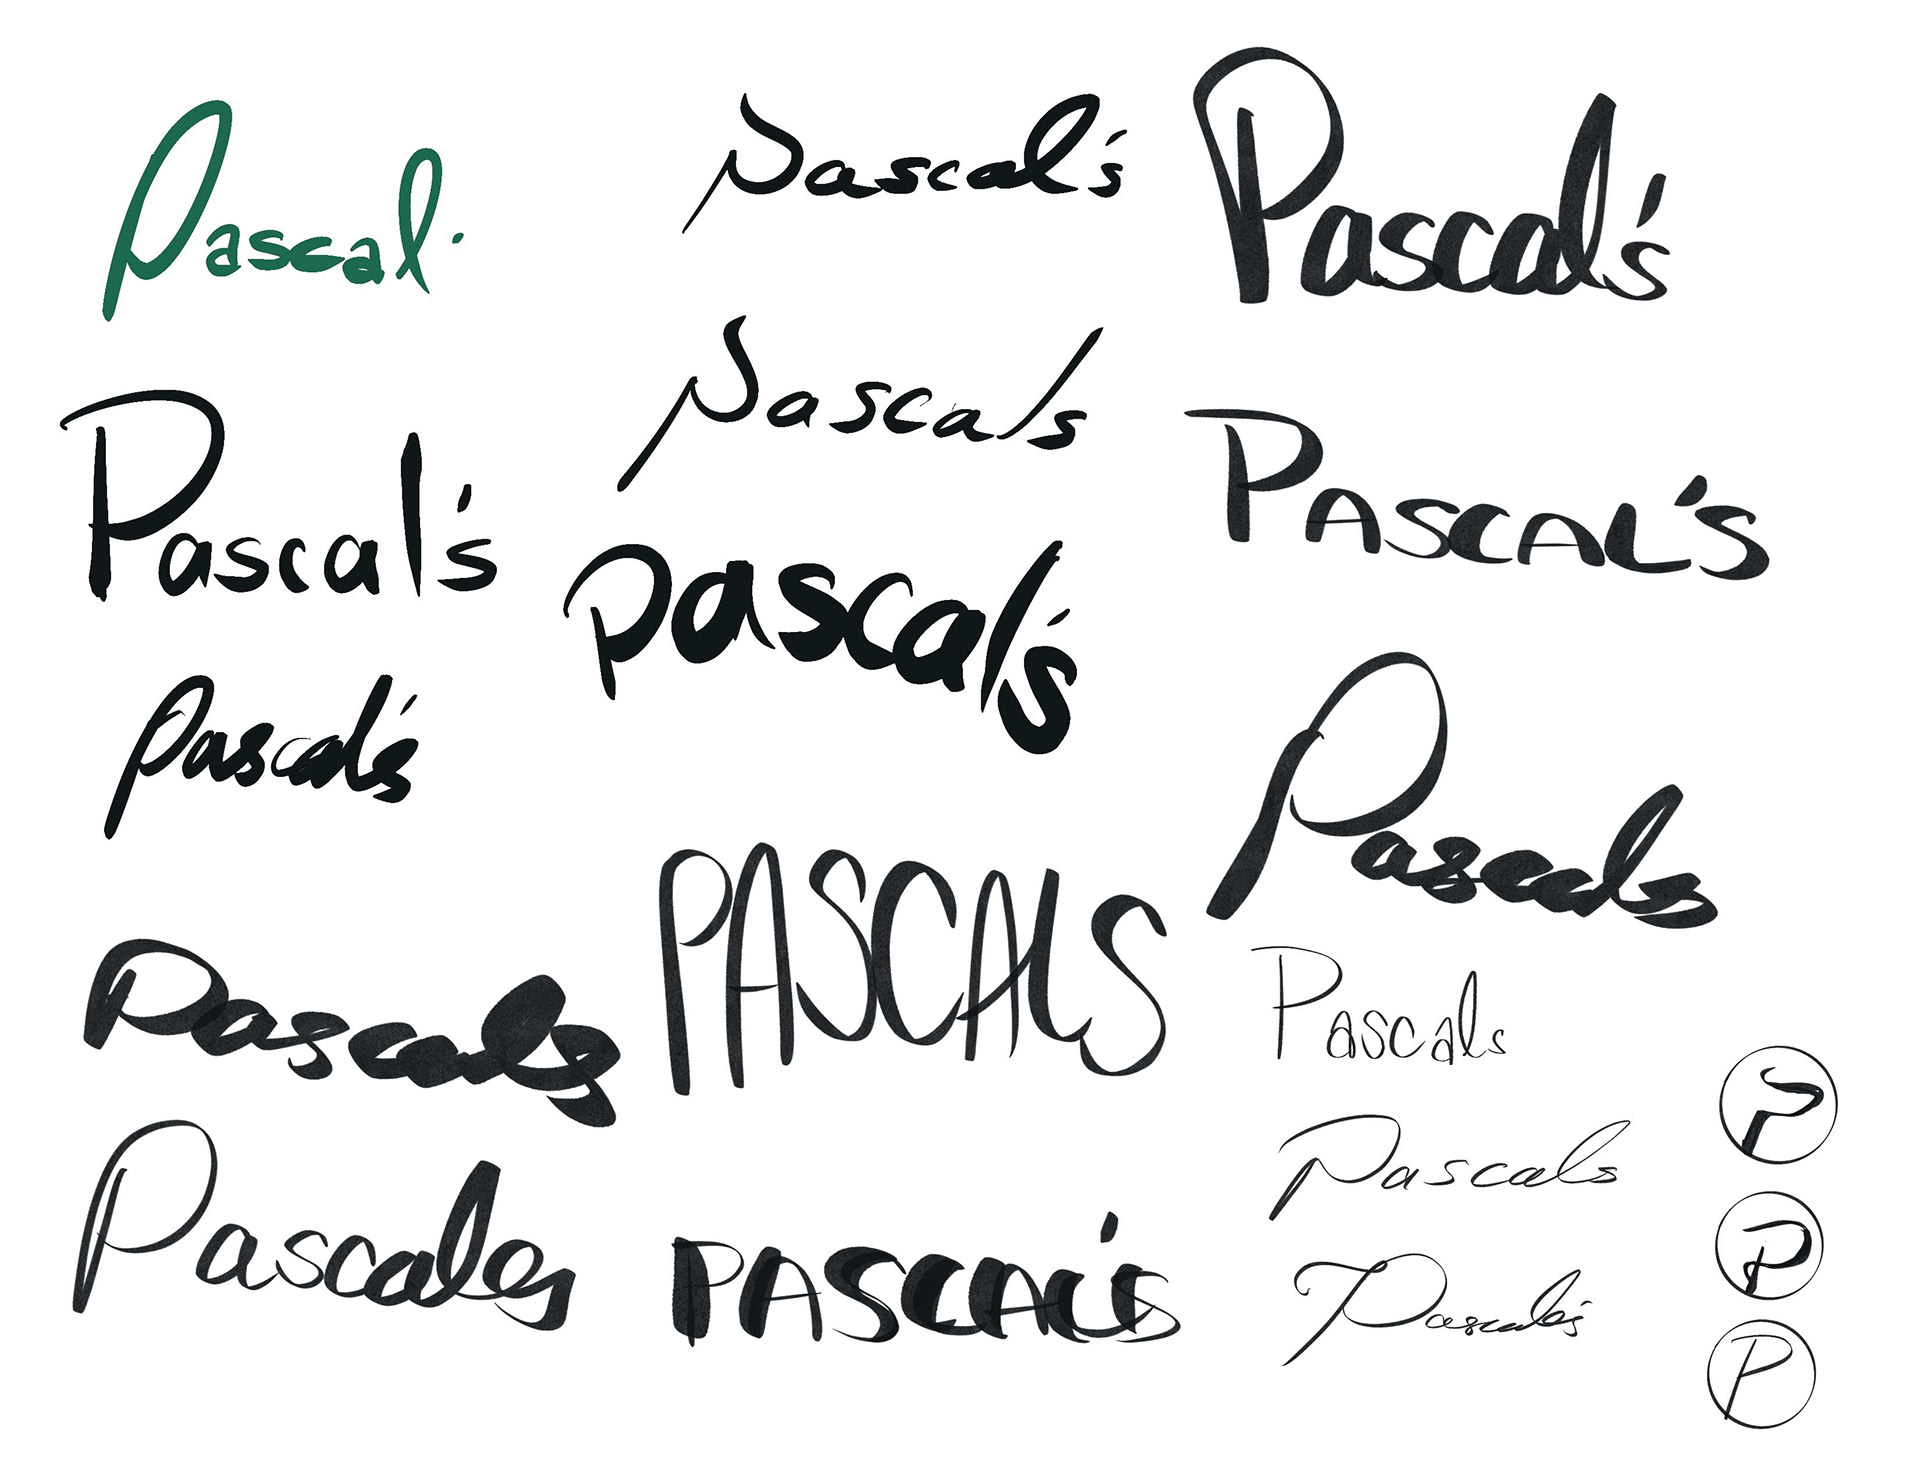 Pascal.
Pascal's
Pascal's
Pascals
Pascales
Pascal's
Pascals
Pascal's
PASCALS
PASCAL'S
Pascal's
PASCAL'S
Pascals
Pascals
Pascals
Pascal's
P
P
P